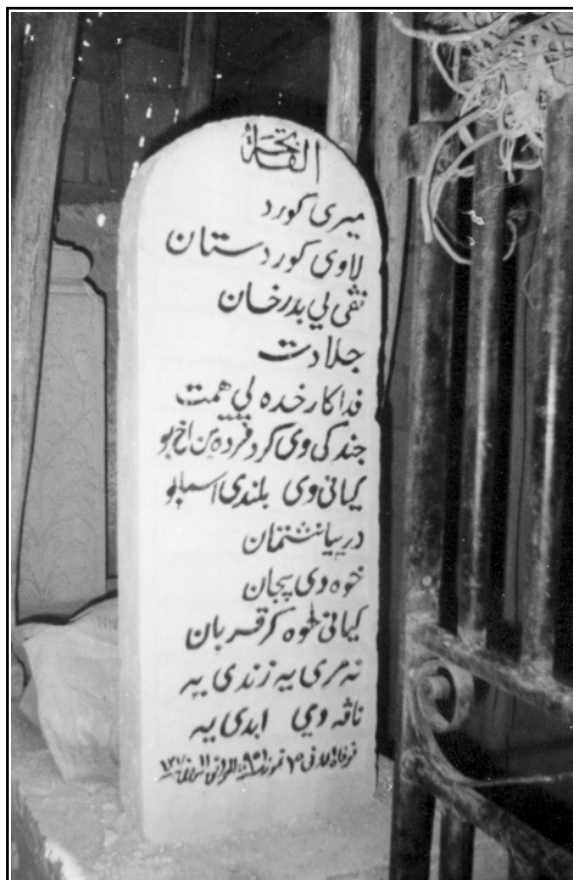 الفاتحة
ميری کورد
لاوی کوردستان
نڤی لي بدرخان
جلادت
فداکار خده لي همت
جندکی وی کرد فرده ين اخ بو
کياني وی بلندی اسما بو
در پيا نشتمان
خوه دی پيجان
کياني خوه کر قربان
نه مری يه زندی يه
ناڤه وي ابدی يه
تموز